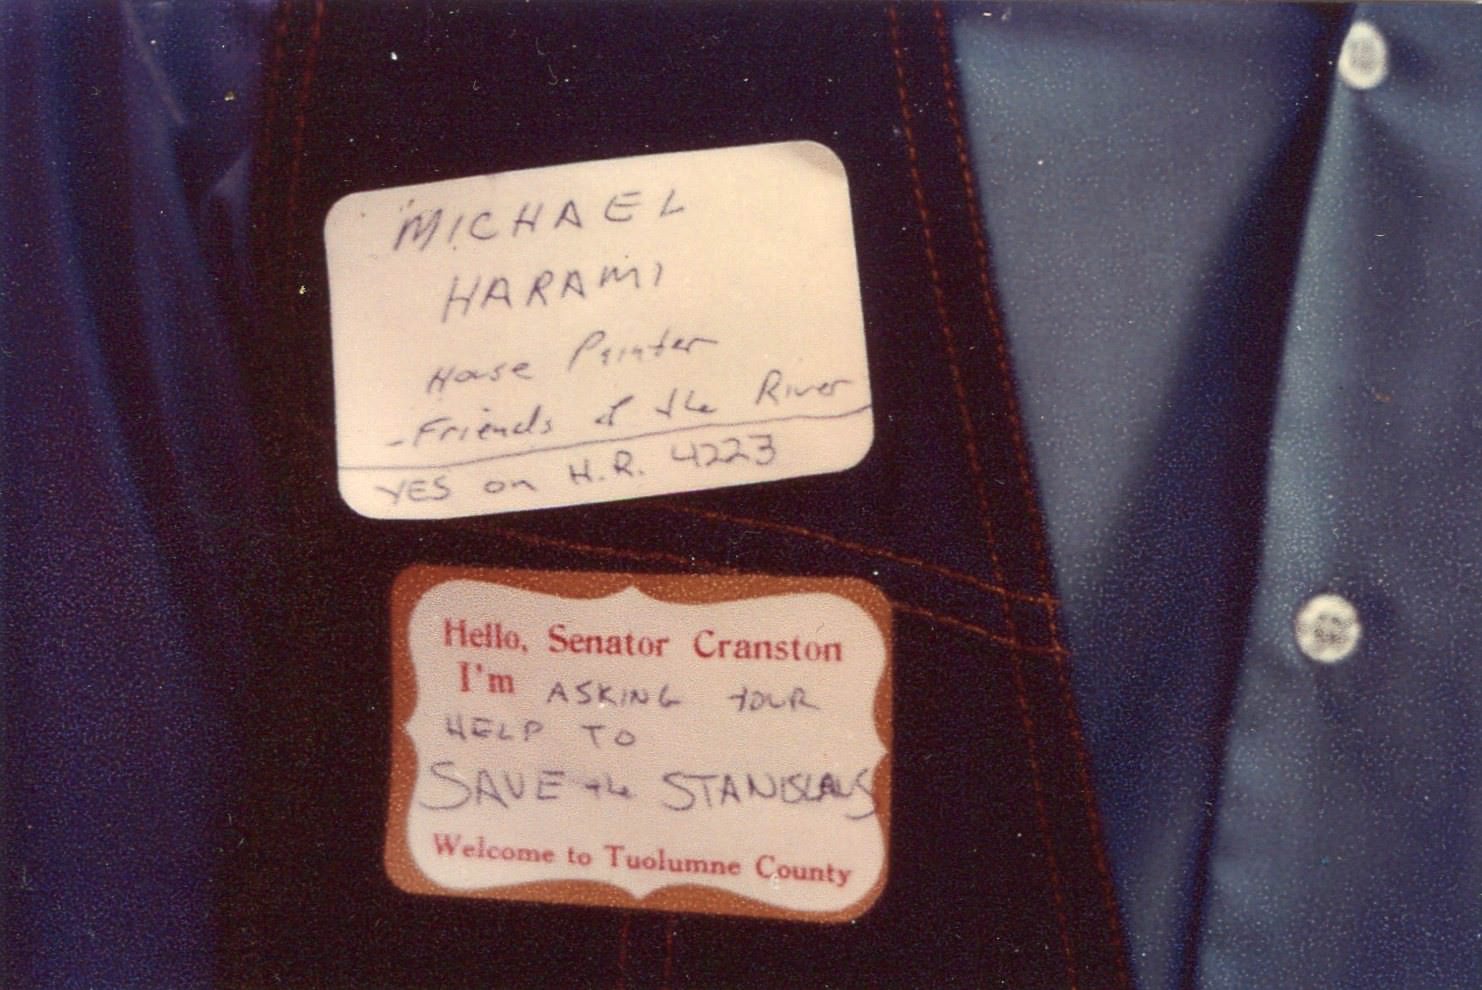 MICHAEL
HARAMI
House Painter
-Friends of the River
YES on H.R. 4223
Hello, Senator Cranston
I'm ASKING YOUR
HELP TO
SAVE the STANISLAUS
Welcome to Tuolumne County